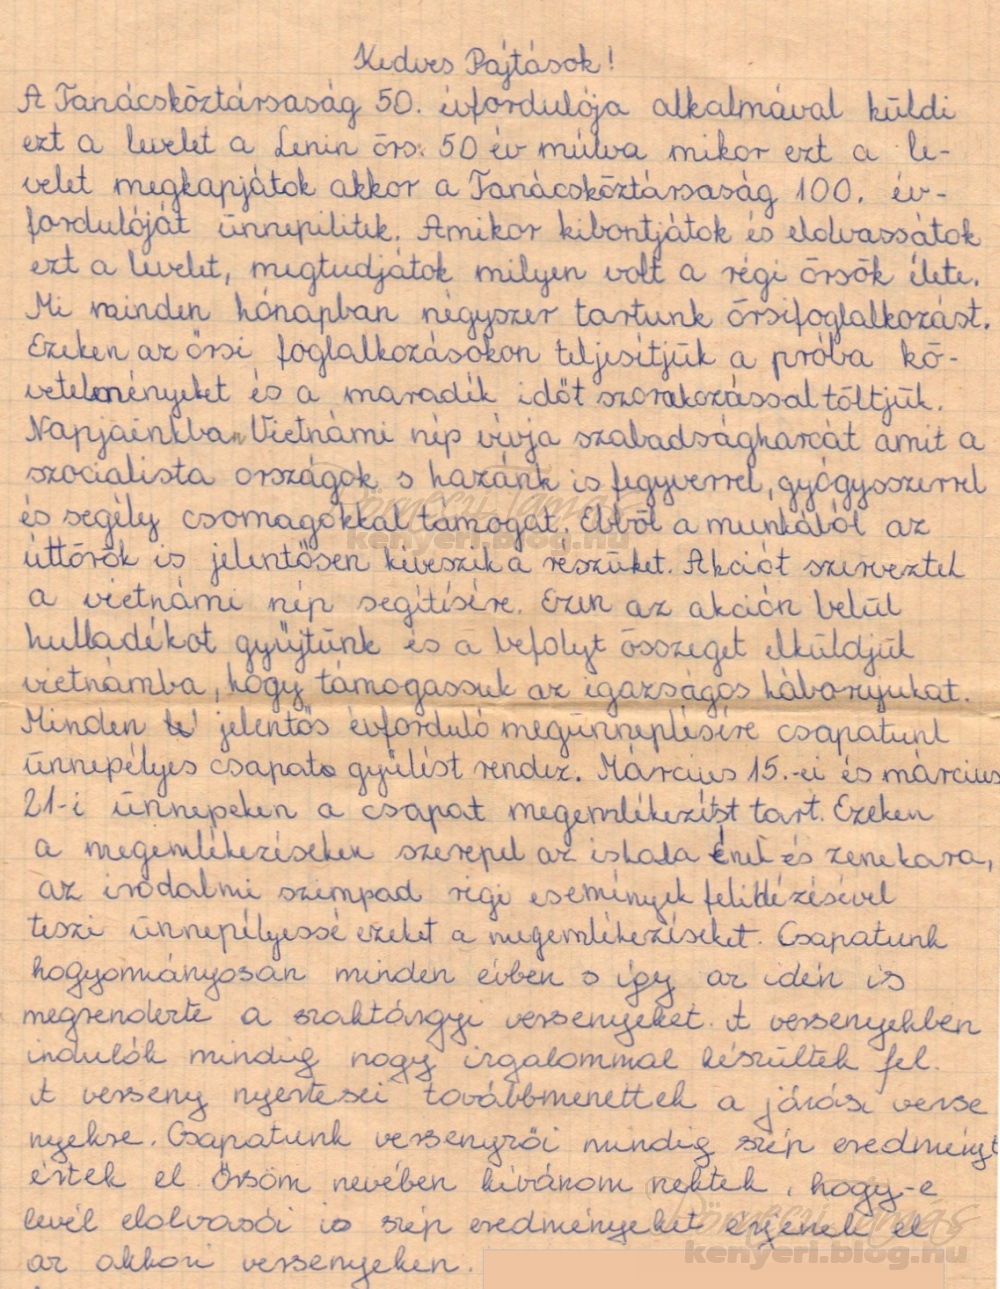 Kedves Pajtások!
A Tanácsköztársaság 50. évfordulója alkalmával küldi
ezt a levelet a Lenin őrs. 50 év múlva mikor ezt a le-
velet megkapjátok akkor a Tanácsköztársaság 100. év-
fordulóját ünnepilitek. Amikor kibontjátok és elolvassátok
ezt a levelet, megtudjátok milyen volt a régi őrsök élete.
Mi minden hónapban négyszer tartunk őrsifoglalkozást.
Ezeken az őrsi foglalkozásokon teljesítjük a próba kö-
vetelményeket és a maradék időt szorakozással töltjük.
Napjainkban Vietnámi nép vívja szabadságharcát amit a
szocialista országok s hazánk is fegyverrel, gyógyszerrel
és segély csomagokkal támogat. Ebből a munkából az
úttörők is jelentősen kiveszik a részüket. Akciót szerveztek
a vietnámi nép segítésére. Ezen az akción belül
hulladékot gyűjtünk és a befolyt összeget elküldjük
vietnámba, hogy támogassuk az igazságos háborujukat.
Minden jelentős évforduló megünneplésére csapatunk
ünnepélyes csapat gyűlést rendez. Március 15.-ei és március
21-i ünnepeken a csapat megemlékezést tart. Ezeken
a megemlékezéseken szerepel az iskola ének és zenekara,
az irodalmi szimpad régi események felidézésével
teszi ünnepélyessé ezeket a megemlékezéseket. Csapatunk
hogyományosan minden évben s így az idén is
megrenderte a szaktárgyi versenyeket. A versenyekben
indulók mindig nagy izgalommal készültek fel.
A verseny nyertesei továbbmenettek a járási verse
nyekre. Csapatunk versenyzői mindig szép eredményt
értek el. Őrsöm nevében kívánom nektek, hogy e
levél elolvasói is szép eredményeket érjenek el
az akkori versenyeken.
Dömötöri Tamás
kenyeri.blog.hu
kenyeri.blog.hu